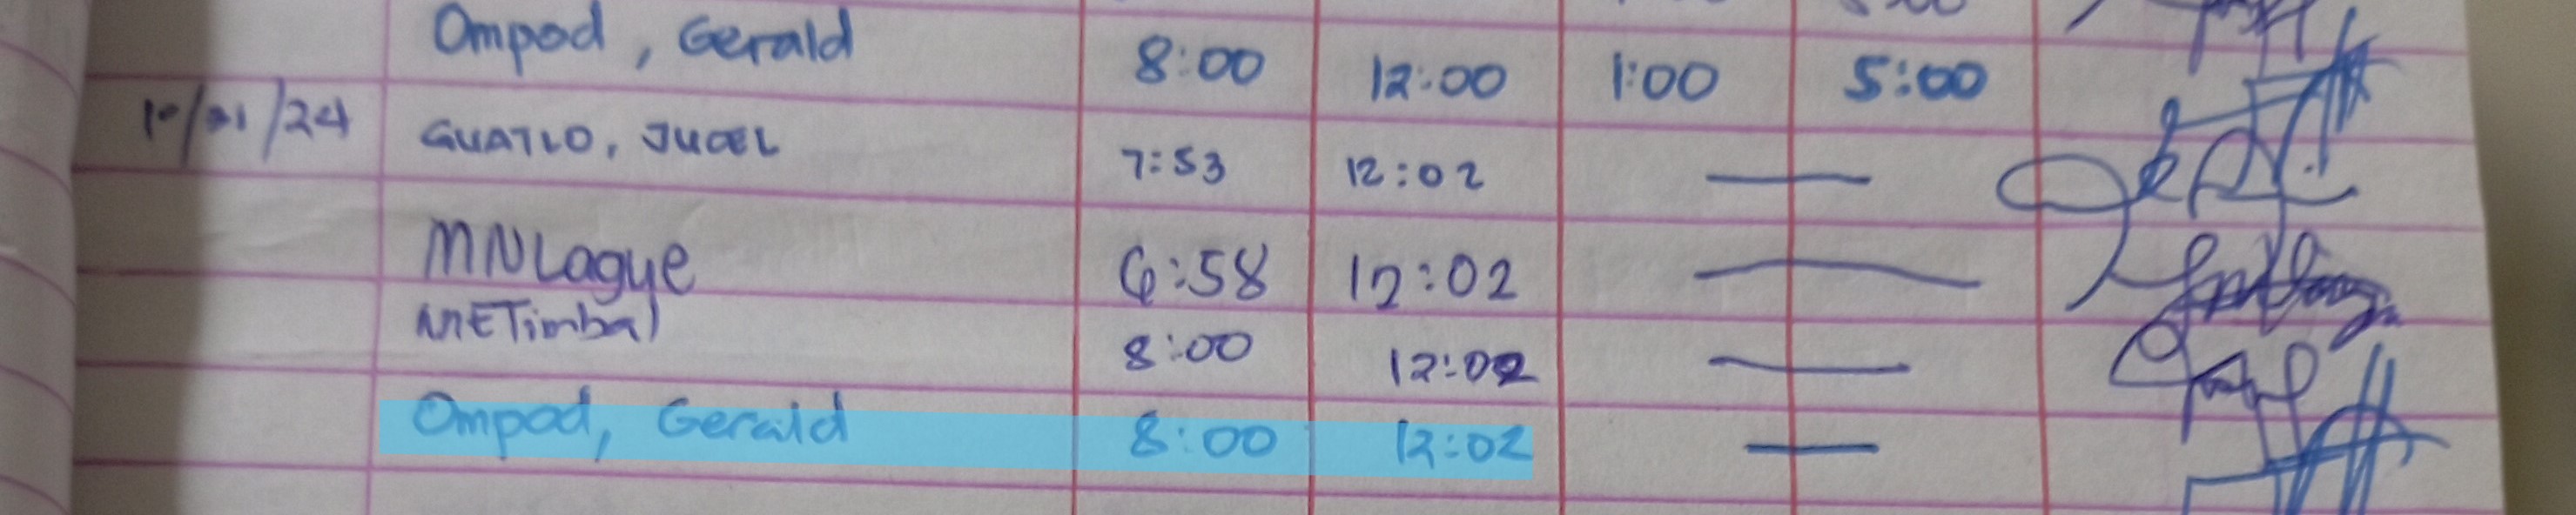 Ompod, Gerald 8:00 12:00 1:00 5:00
10/21/24 GUATLO, JUDEL 7:53 12:02 —
MNLague 6:58 12:02 —
METimbal 8:00 12:02 —
Ompod, Gerald 8:00 12:02 —